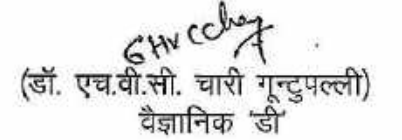 GHVCChary
(डॉ. एच.वी.सी. चारी गून्टुपल्ली)
वैज्ञानिक 'डी'